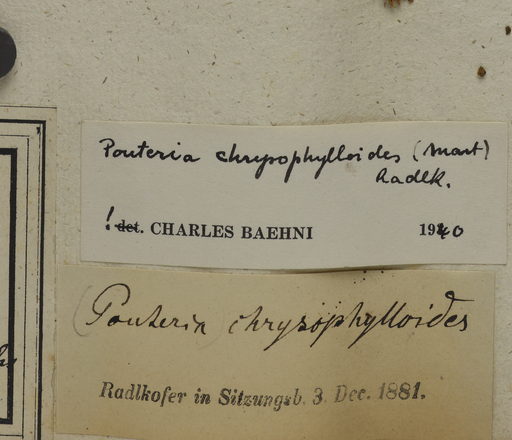 Pouteria chrysophylloides (Mart)
Radlk.
! det. CHARLES BAEHNI 1940
(Pouteria) chrysophylloides
Radlkofer in Sitzungsb. 3. Dec. 1881.